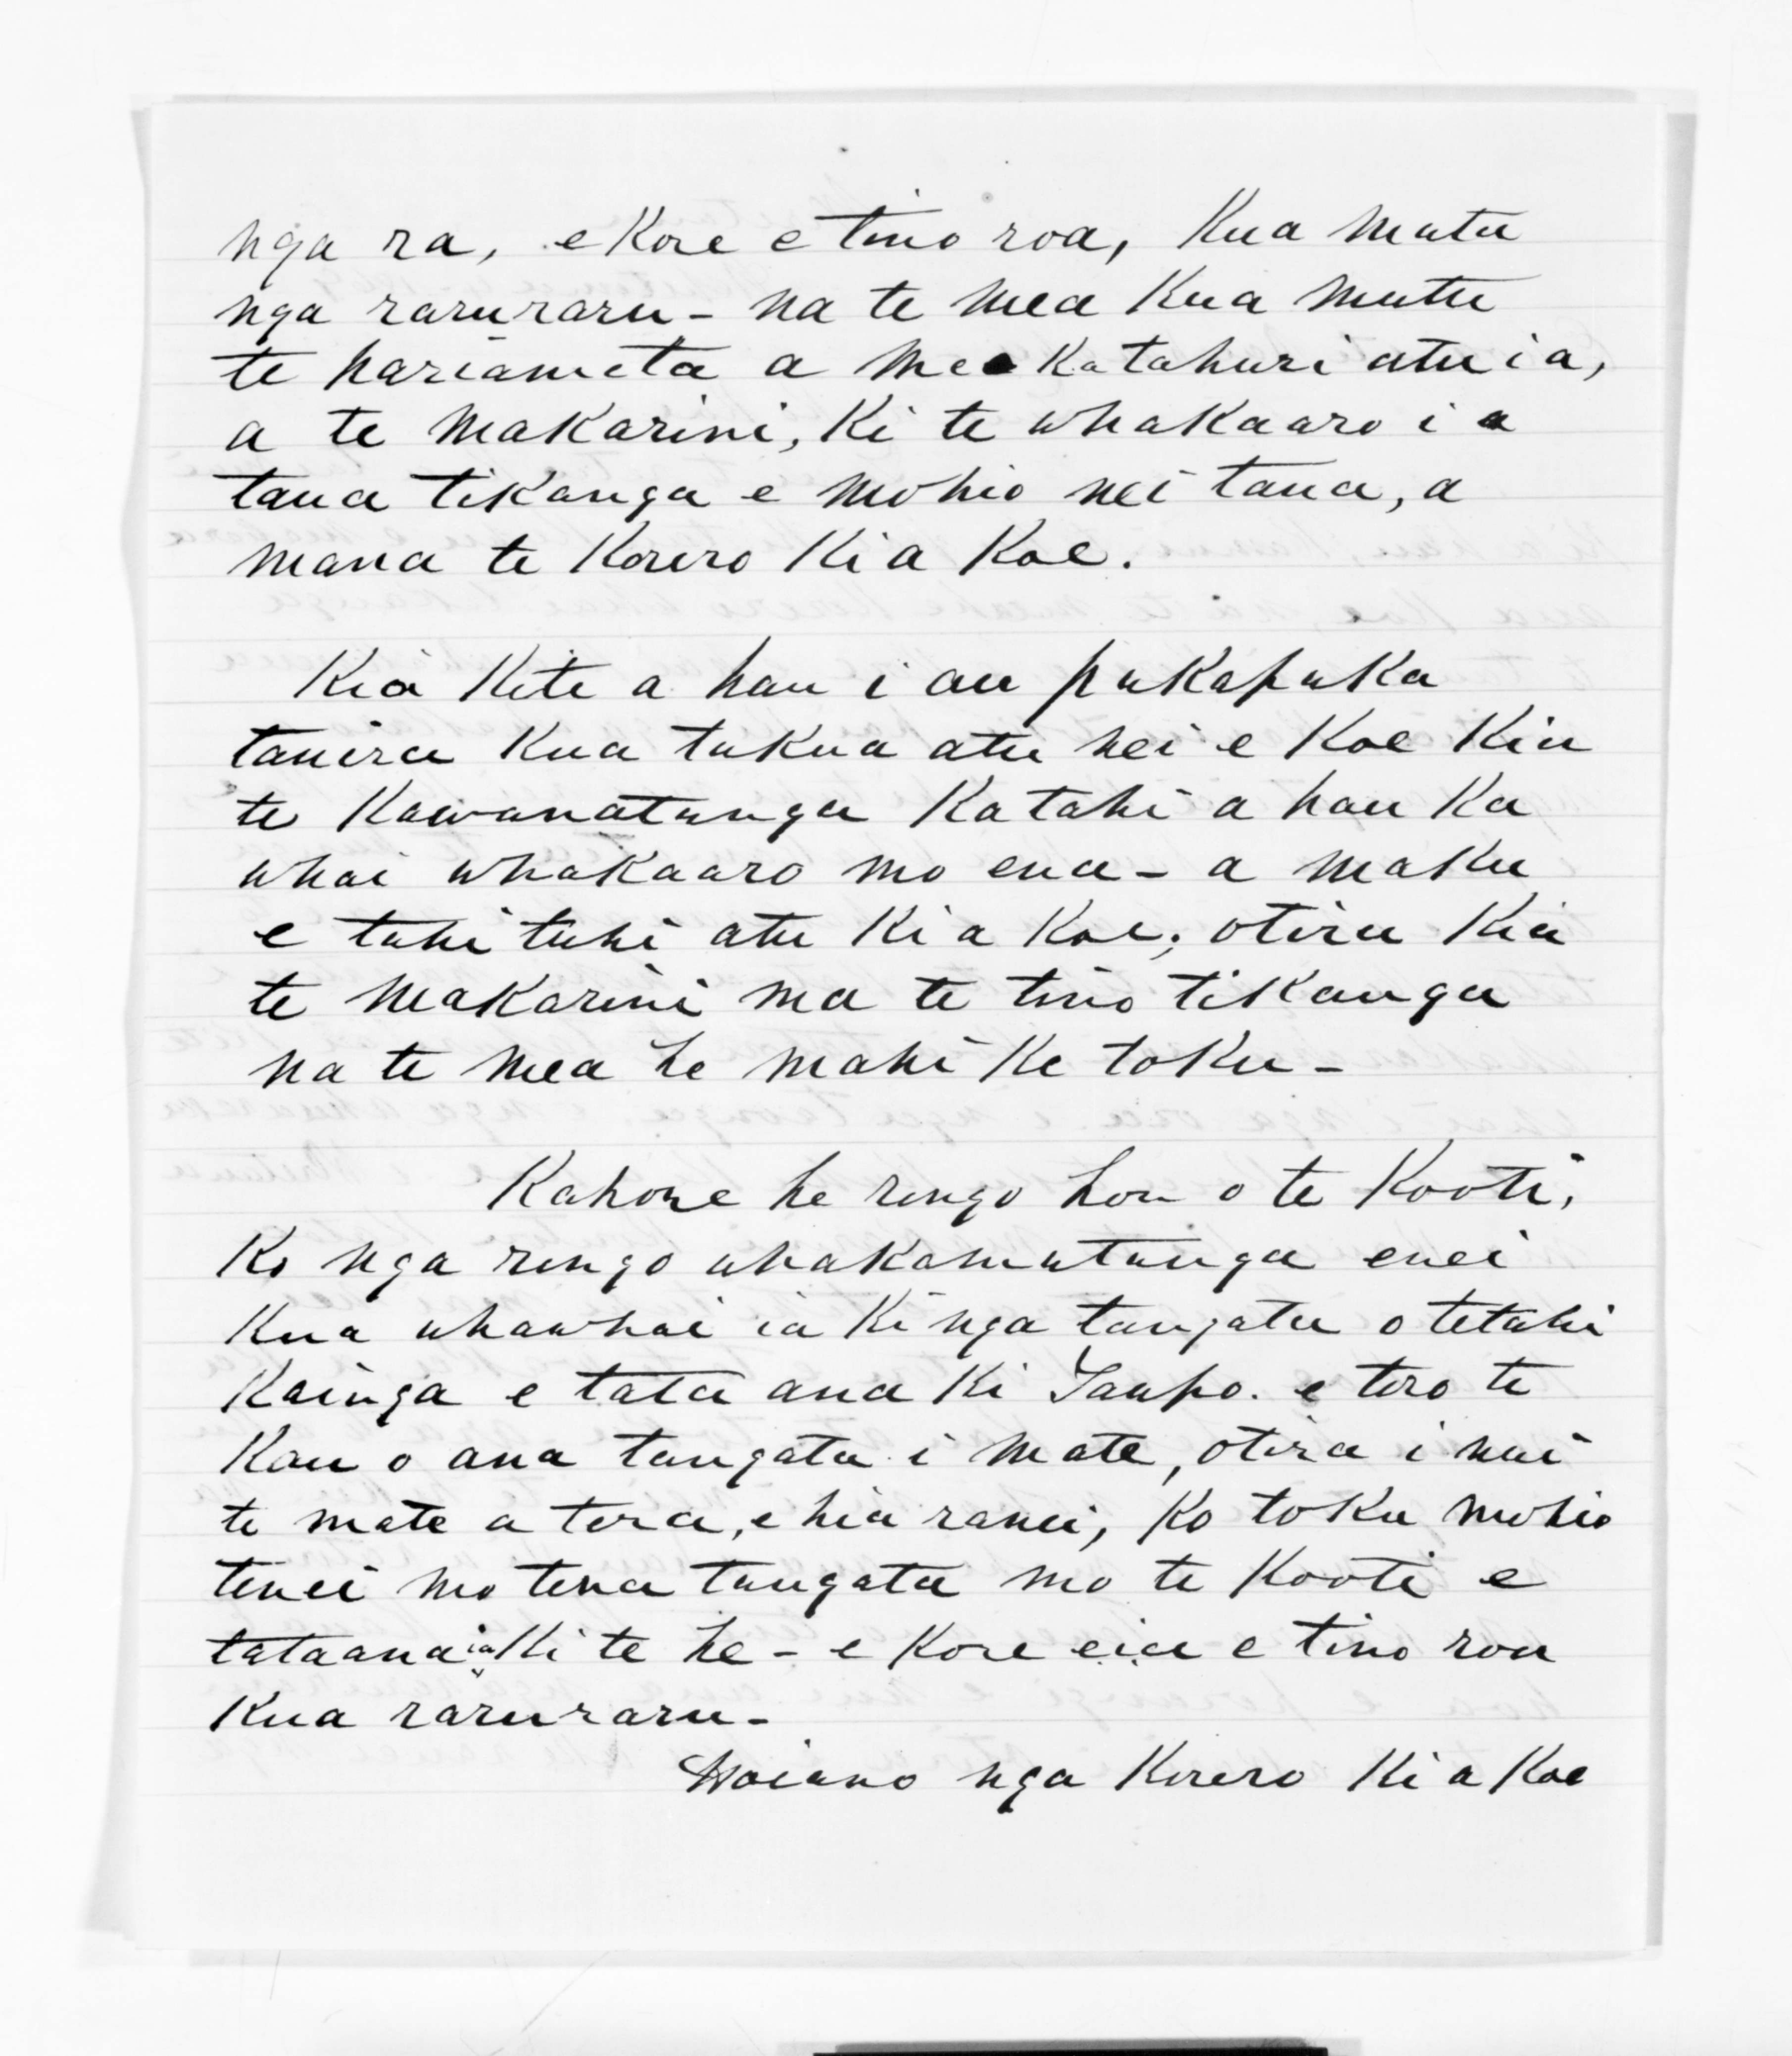 nga ra, e Kore e tino roa, Kua mutu
nga raruraru - na te mea Kua mutu
te pariameta a mea Ka tahuri atu ia,
a te Makarini, Ki te whakaaro i a
taua tikanga e mohio nei taua, a
mana te Korero Ki a Koe.
Kia Kite a hau i au pukapuka
tauira Kua tukua atu nei e Koe Kia
te Kawanatanga Katahi a hau Ka
whai whakaaro mo ena - a maku
e tuhi tuhi atu Ki a Koe; otira Kia
te Makarini ma te tino tikanga
na te mea he mahi Ke toku -
Kahore he rongo hou o te Kooti,
Ko nga rongo whakamutunga enei
Kua whawhai ia Ki nga tangata o tetahi
Kainga e tata ana Ki Taupo. e toro te
Kau o ana tangata i mate, otira i nui
te mate a tera, e hia ranei, Ko toku mohio
tenei mo tena tangata mo te Kooti e
tataana ia Ki te he - e Kore e ia e tino roa
Kua raruraru -
Hoiano nga Korero Ki a Koe